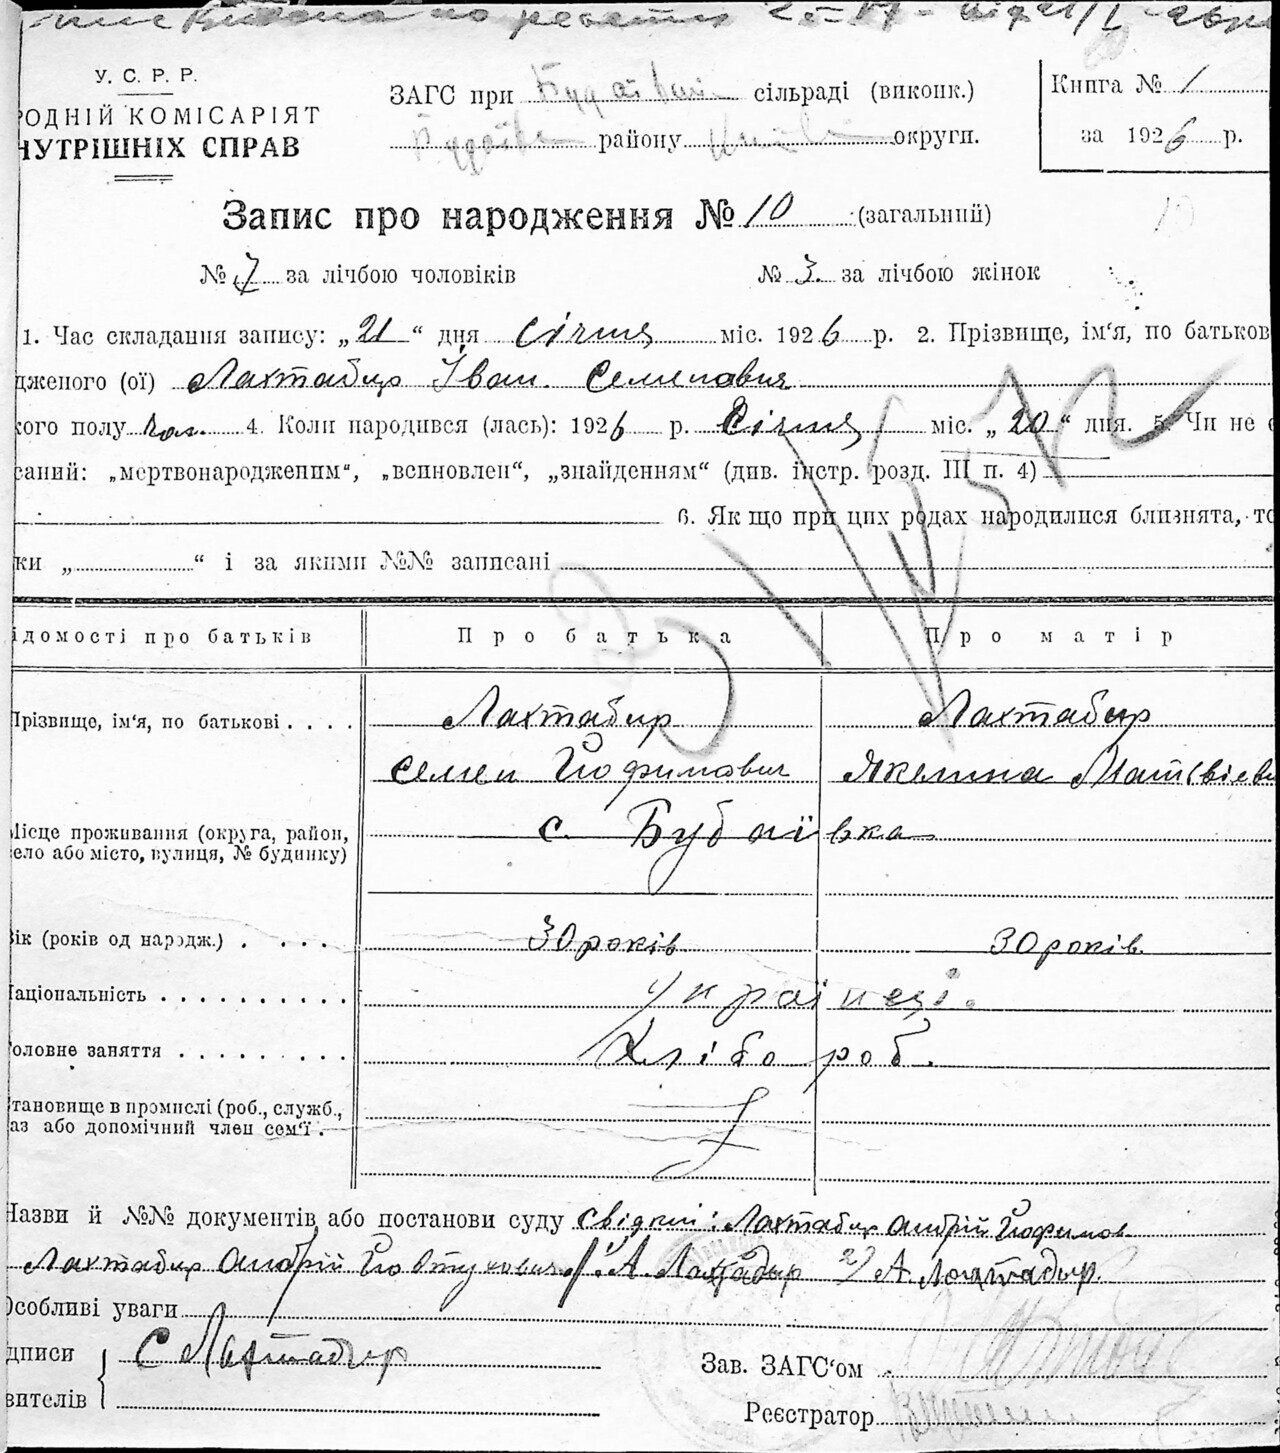 У. С. Р. Р.
РОДНІЙ КОМІСАРІЯТ
НУТРІШНІХ СПРАВ
ЗАГС при сільраді (виконк.)
району округи.
Книга № 1
за 1926 р.
Запис про народження № 10 (загальний)
№ 7 за лічбою чоловіків № 3 за лічбою жінок
1. Час складання запису: „21“ дня Січня міс. 1926 р. 2. Прізвище, ім‘я, по батьков
дженого (ої) Лахтадир Іван Семенович
кого полу чол. 4. Коли народився (лась): 1926 р. Січня міс. „20“ дня. 5. Чи не
саний: „мертвонародженим“, „всиновлен“, „знайденням“ (див. інстр. розд. III п. 4)
6. Як що при цих родах народилися близнята, то
ки „ “ і за якими №№ записані
ідомості про батьків Про батька Про матір
Прізвище, ім‘я, по батькові Лахтадир Лахтадир
Семен Йофимович Якелина
Місце проживання (округа, район,
село або місто, вулиця, № будинку) с. Будаївка
Вік (років од народж.) 30 років 30 років
Національність Українці.
Головне заняття Хлібороб.
Становище в промислі (роб., служб.,
аз або допомічний член сем‘ї
Назви й №№ документів або постанови суду Свідкии: Лахтадир Андрій Йофимов
Лахтадир Андрій 1/ А Лахтадир 2/ А. Лохтадир.
Особливі уваги
дписи С Лахтадир
вителів
Зав. ЗАГС‘ом
Реєстратор